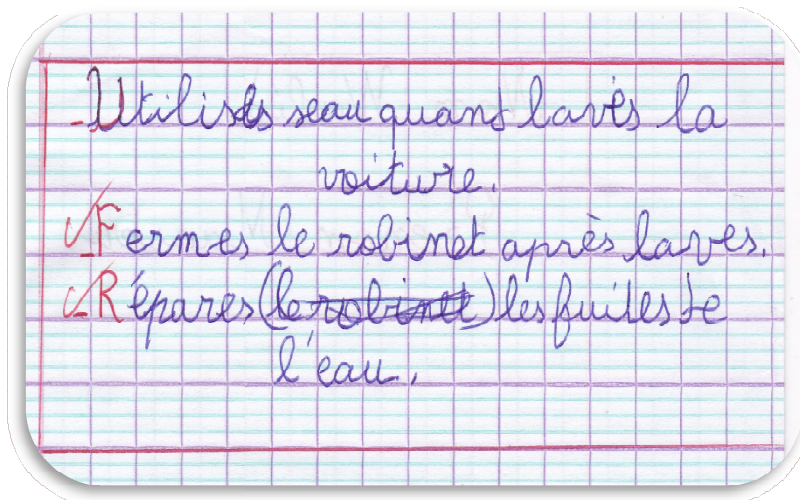 - Utilises seau quant lavés la
voiture.
- Fermes le robinet après laves.
- Répares (le robinet) les fuites de
l'eau.